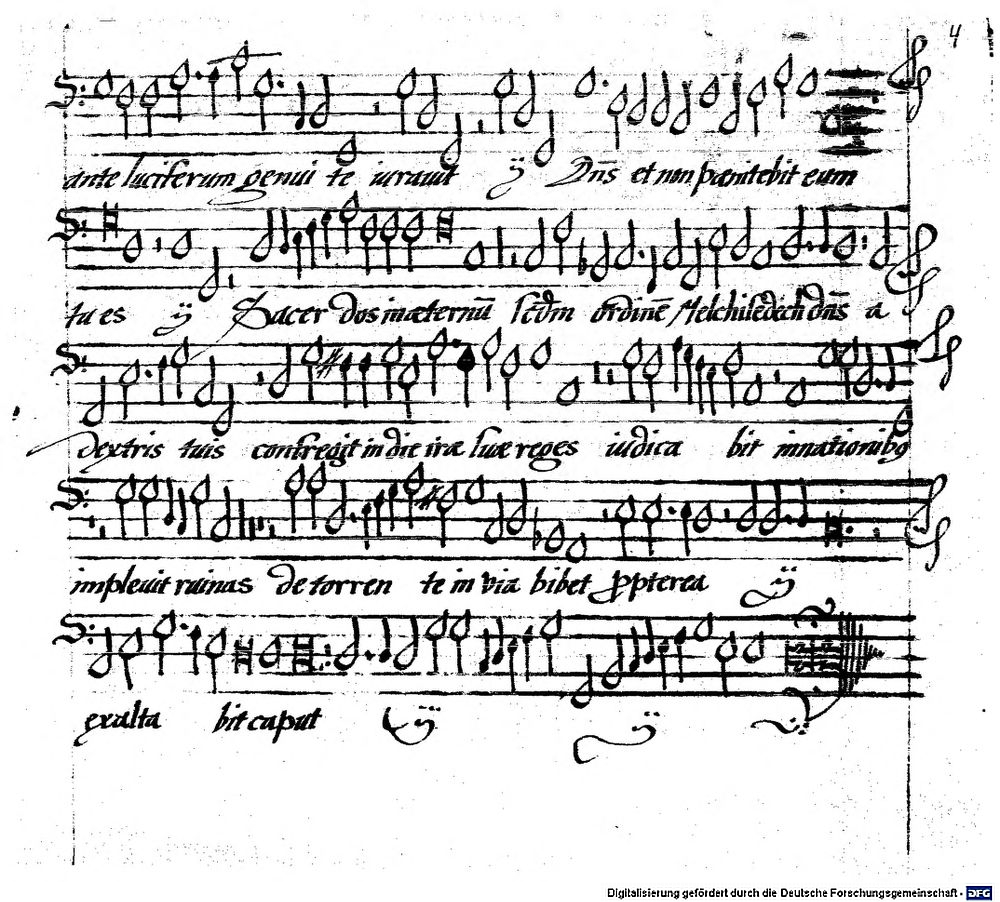 4
ante luciferum genui te iuravit ij Dn̄s et non pænitebit eum
tu es ij Sacerdos in æternū secd̄m ordinē Melchisedech dn̄s a
dextris tuis confregit in die iræ suæ reges iudica bit in nationibꝯ
impleuit ruinas de torren te in via bibet ꝓpterea ij
exalta bit caput ij ij ij
Digitalisierung gefördert durch die Deutsche Forschungsgemeinschaft - DFG